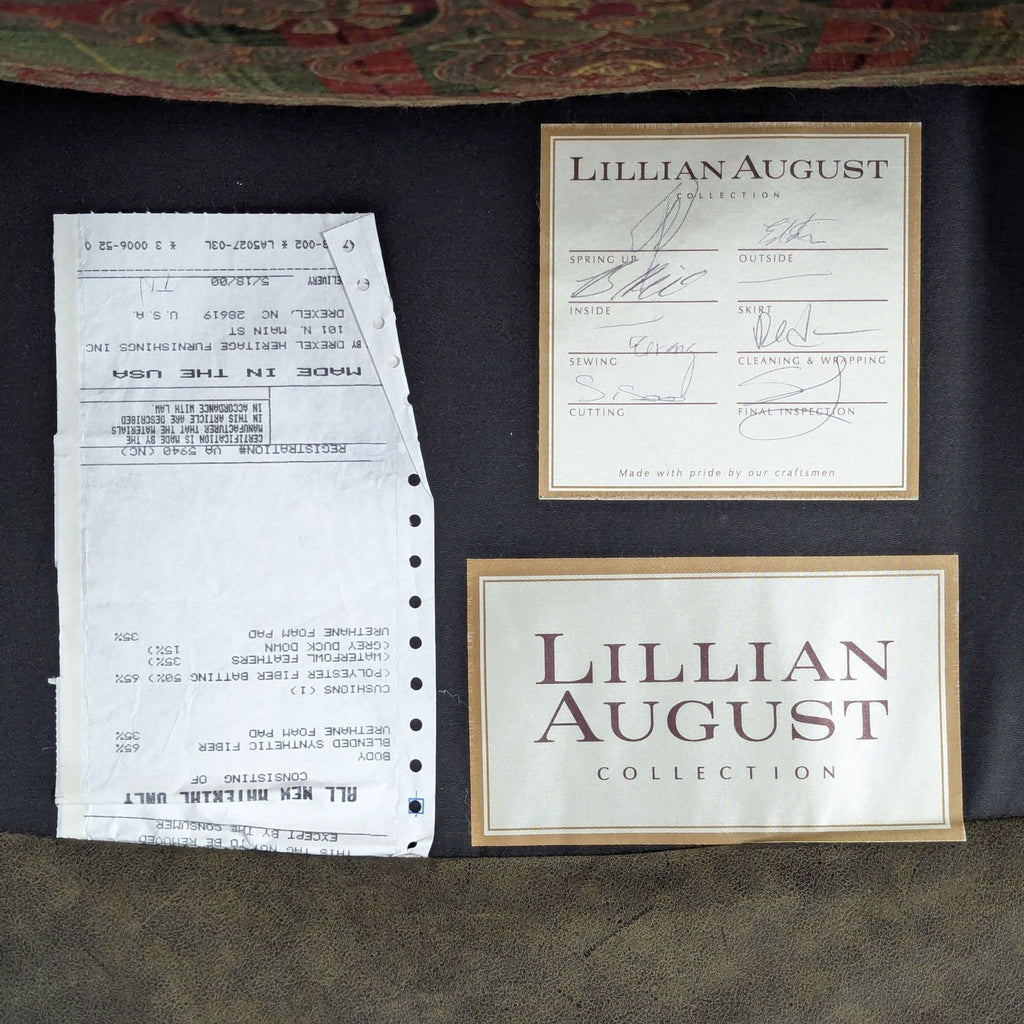 LILLIAN AUGUST
COLLECTION
SPRING UP
OUTSIDE
INSIDE
SKIRT
SEWING
CLEANING & WRAPPING
CUTTING
FINAL INSPECTION
Made with pride by our craftsmen
LILLIAN
AUGUST
COLLECTION
THIS TAG NOT TO BE REMOVED
EXCEPT BY THE CONSUMER
ALL NEW MATERIAL ONLY
CONSISTING OF
BODY
BLENDED SYNTHETIC FIBER 65%
URETHANE FOAM PAD 35%
CUSHIONS (1)
(POLYESTER FIBER BATTING 50%) 65%
(WATERFOWL FEATHERS 35%)
(GREY DUCK DOWN 15%)
URETHANE FOAM PAD 35%
REGISTRATION# VA 5940 (NC)
CERTIFICATION IS MADE BY THE
MANUFACTURER THAT THE MATERIALS
IN THIS ARTICLE ARE DESCRIBED
IN ACCORDANCE WITH LAW
MADE IN THE USA
BY DREXEL HERITAGE FURNISHINGS INC
101 N. MAIN ST
DREXEL, NC 28619 U.S.A.
DELIVERY 5/18/00 TN
-002 * LA5027-03L * 3 0006-52 0